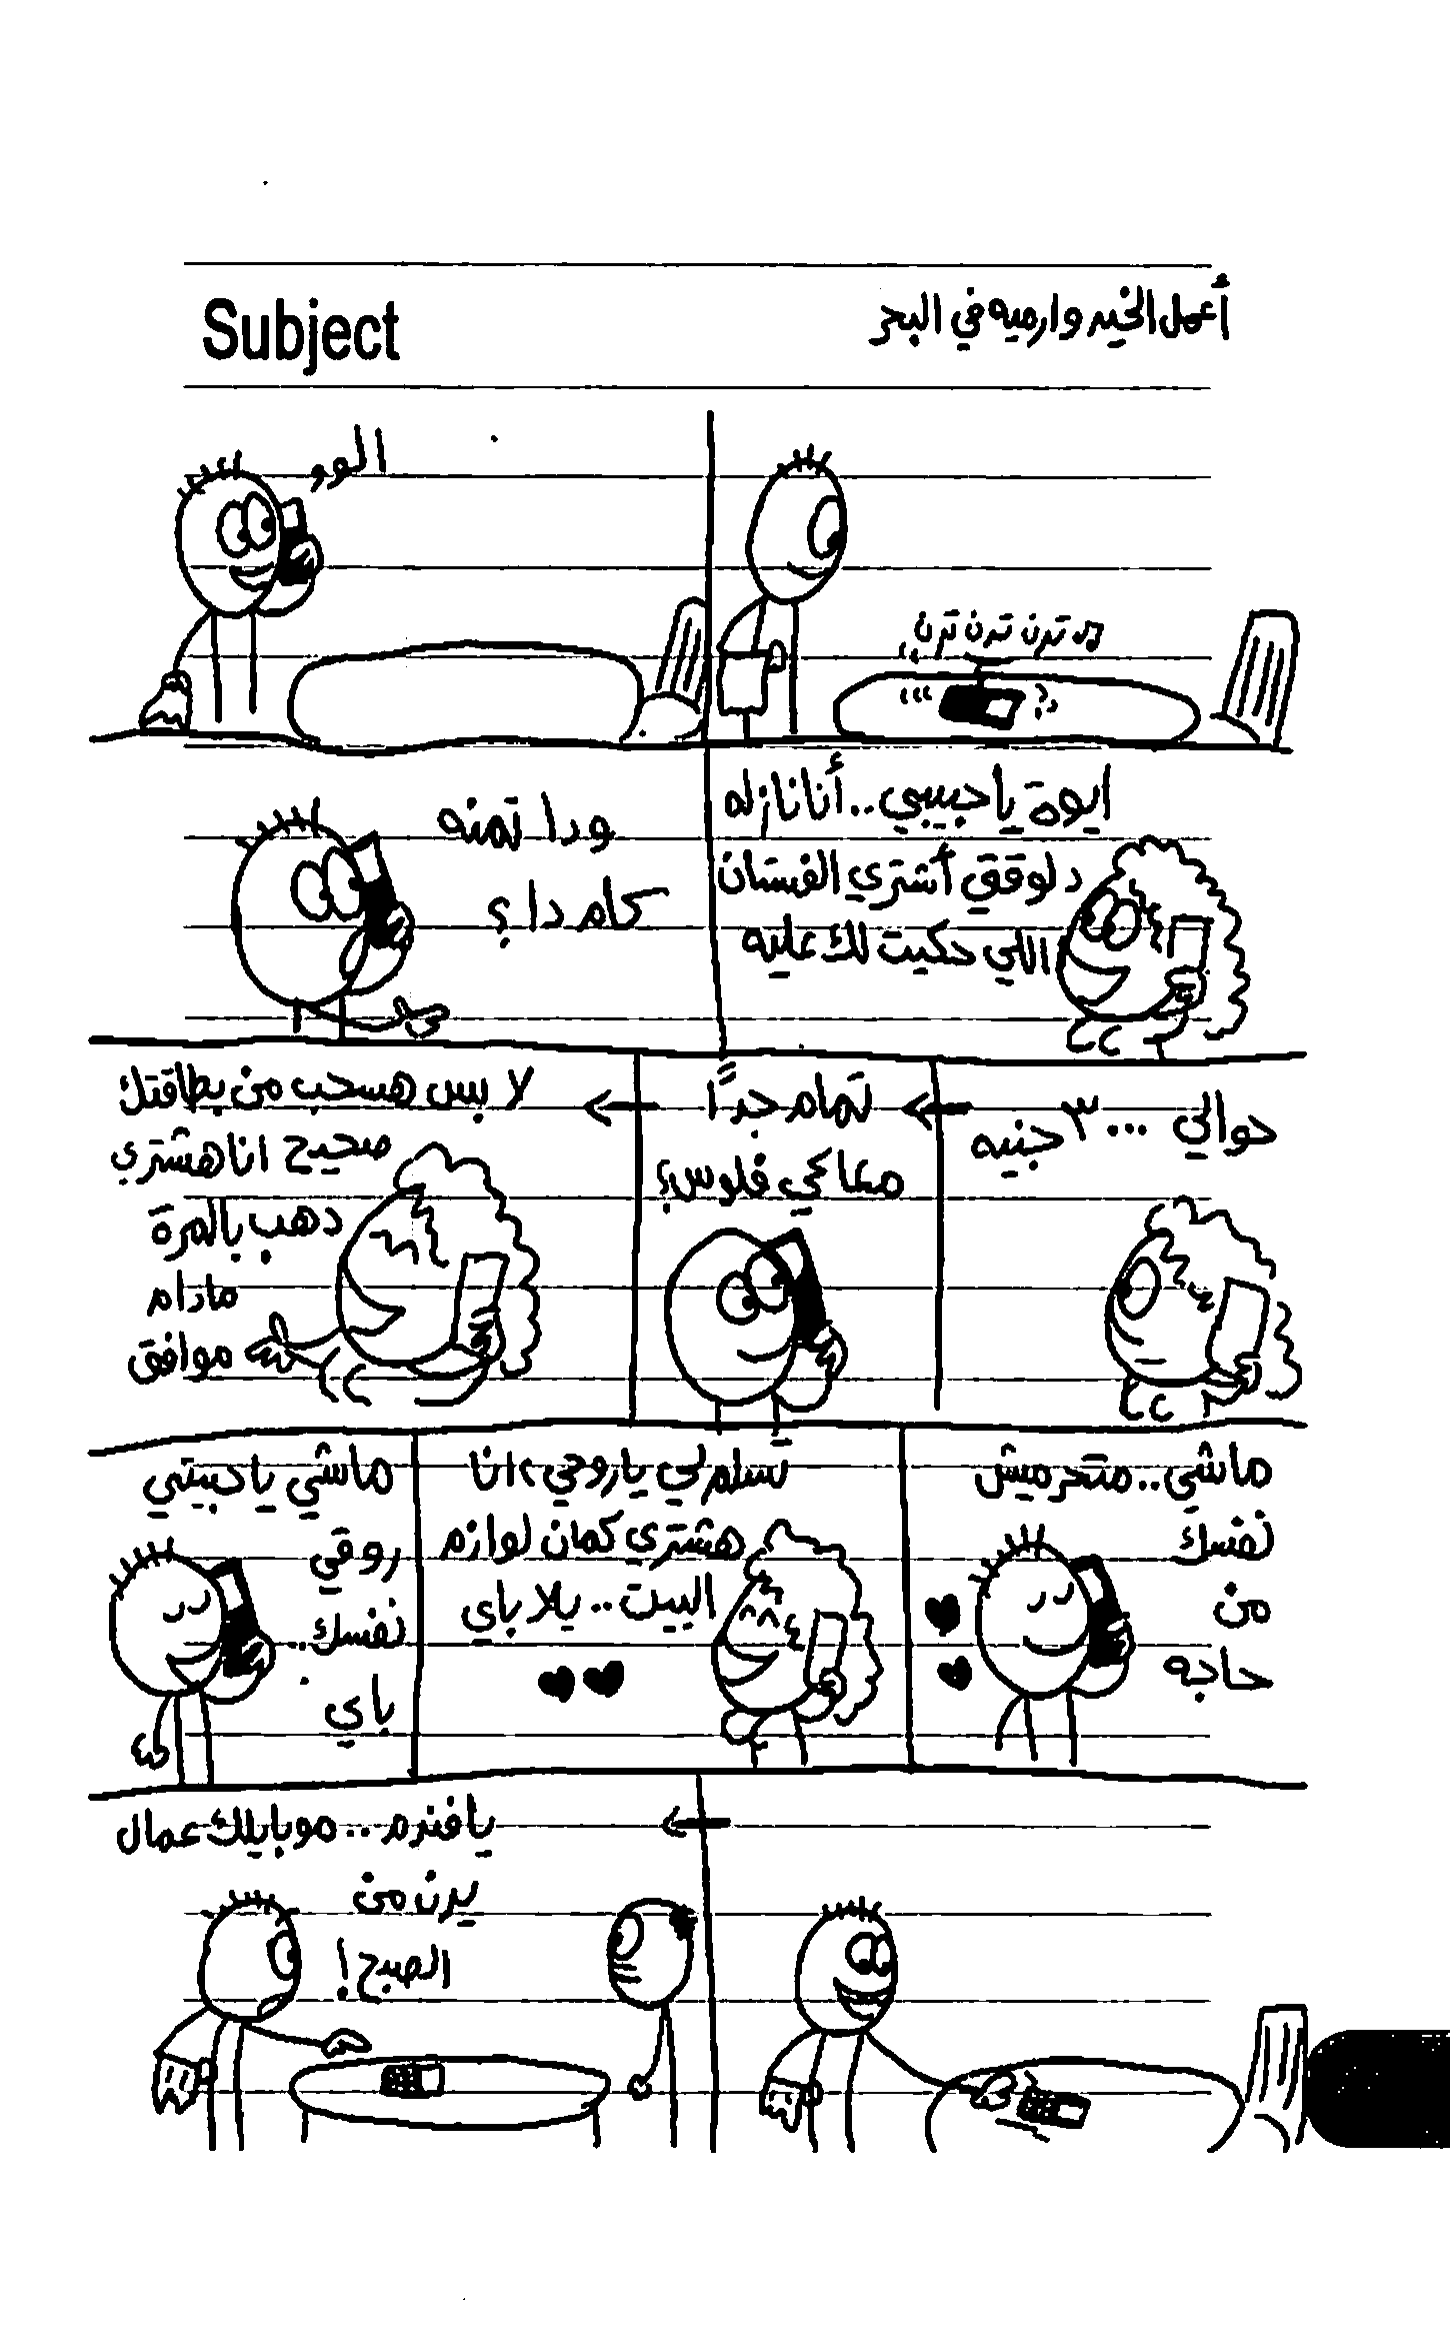 Subject
أعمل الخير وارميه في البحر
ترن ترن ترن
الوو
ايوة يا حبيبي..أنا نازله
دلوقتي أشتري الفستان
اللي حكيت لك عليه
ودا تمنه
كام دا؟
حوالي ٣٠٠٠ جنيه
تمام جداً
معاكي فلوس؟
لا بس هسحب من بطاقتك
صحيح انا هشتري
دهب بالمرة
مادام
موافق
ماشي..متحرميش
نفسك
من
حاجه
تسلملي ياروحي، انا
هشتري كمان لوازم
البيت..يلا باي
ماشي يا حبيبتي
روقي
نفسك..
باي
يا فندم..موبايلك عمال
يرن من
الصبح!